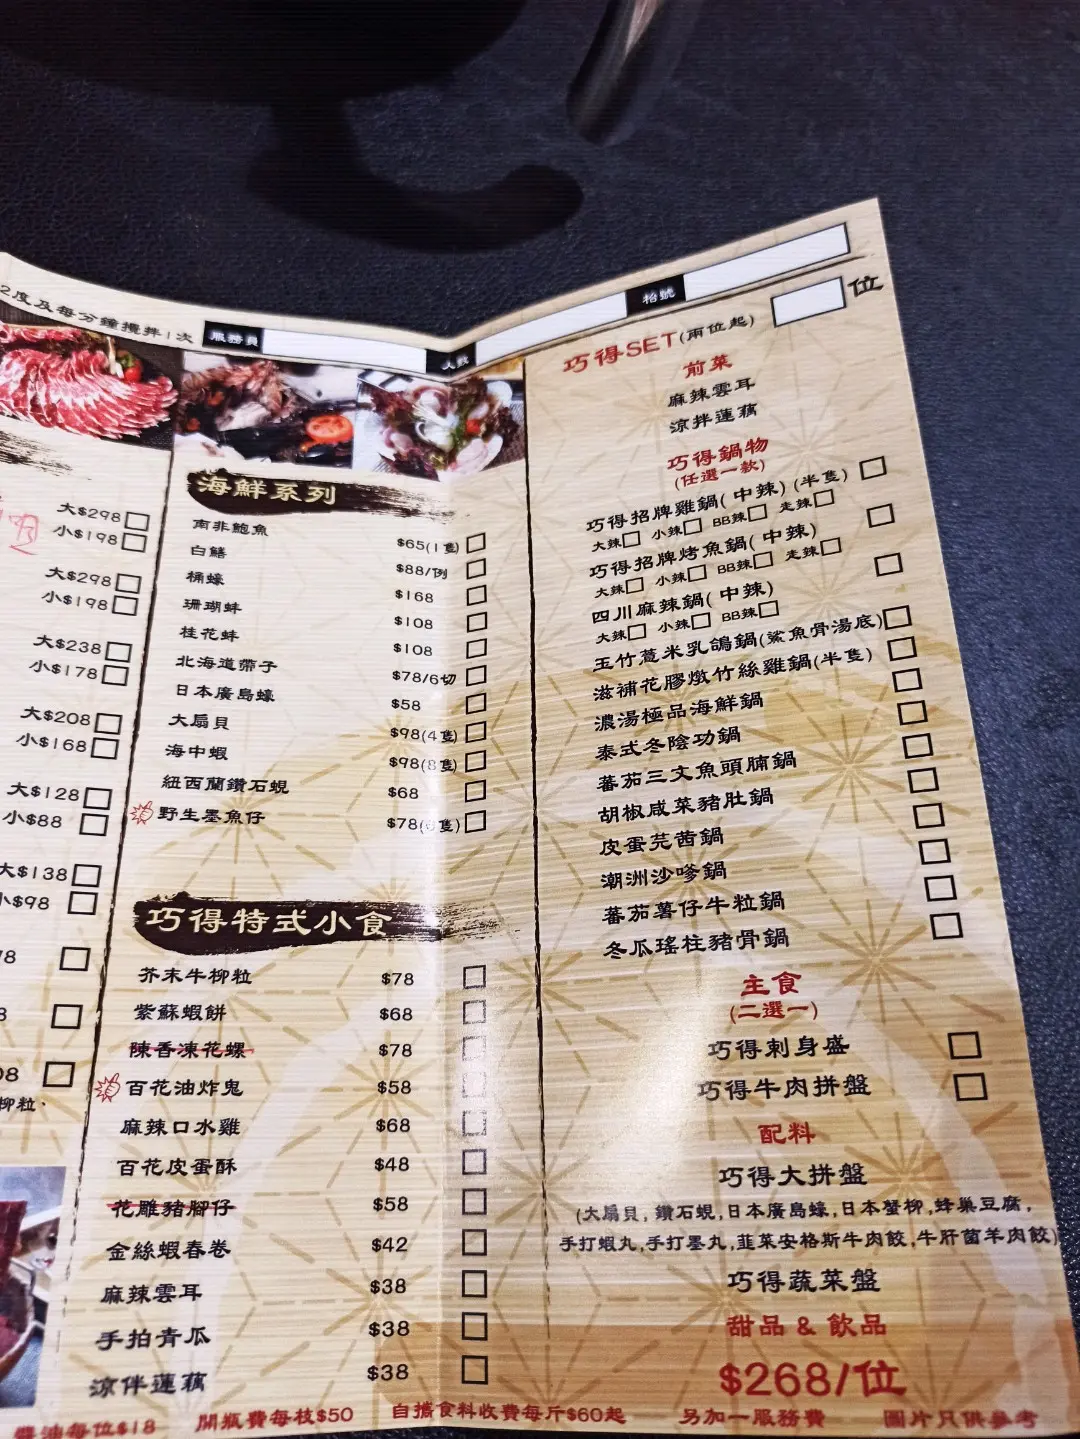 2度及每分鐘攪拌1次
服務員
人數
枱號
大$298
小$198
大$298
小$198
大$238
小$178
大$208
小$168
大$128
小$88
大$138
小$98
柳粒、
海鮮系列
南非鮑魚 $65(1隻)
白鱔 $88/例
桶蠔 $168
珊瑚蚌 $108
桂花蚌 $108
北海道帶子 $78/6切
日本廣島蠔 $58
大扇貝 $98(4隻)
海中蝦 $98(8隻)
紐西蘭鑽石蜆 $68
野生墨魚仔 $78(6隻)
巧得特式小食
芥末牛柳粒 $78
紫蘇蝦餅 $68
陳香凍花螺 $78
百花油炸鬼 $58
麻辣口水雞 $68
百花皮蛋酥 $48
花雕豬腳仔 $58
金絲蝦春卷 $42
麻辣雲耳 $38
手拍青瓜 $38
涼伴蓮藕 $38
位
巧得SET(兩位起)
前菜
麻辣雲耳
涼拌蓮藕
巧得鍋物
(任選一款)
巧得招牌雞鍋(中辣)(半隻)
大辣 小辣 BB辣 走辣
巧得招牌烤魚鍋(中辣)
大辣 小辣 BB辣 走辣
四川麻辣鍋(中辣)
大辣 小辣 BB辣
玉竹薏米乳鴿鍋(鯊魚骨湯底)
滋補花膠燉竹絲雞鍋(半隻)
濃湯極品海鮮鍋
泰式冬陰功鍋
蕃茄三文魚頭腩鍋
胡椒咸菜豬肚鍋
皮蛋芫茜鍋
潮洲沙嗲鍋
蕃茄薯仔牛粒鍋
冬瓜瑤柱豬骨鍋
主食
(二選一)
巧得刺身盛
巧得牛肉拼盤
配料
巧得大拼盤
(大扇貝,鑽石蜆,日本廣島蠔,日本蟹柳,蜂巢豆腐,
手打蝦丸,手打墨丸,韮菜安格斯牛肉餃,牛肝菌羊肉餃)
巧得蔬菜盤
甜品 & 飲品
$268/位
醬油每位$18 開瓶費每枝$50 自攜食料收費每斤$60起 另加一服務費 圖片只供參考